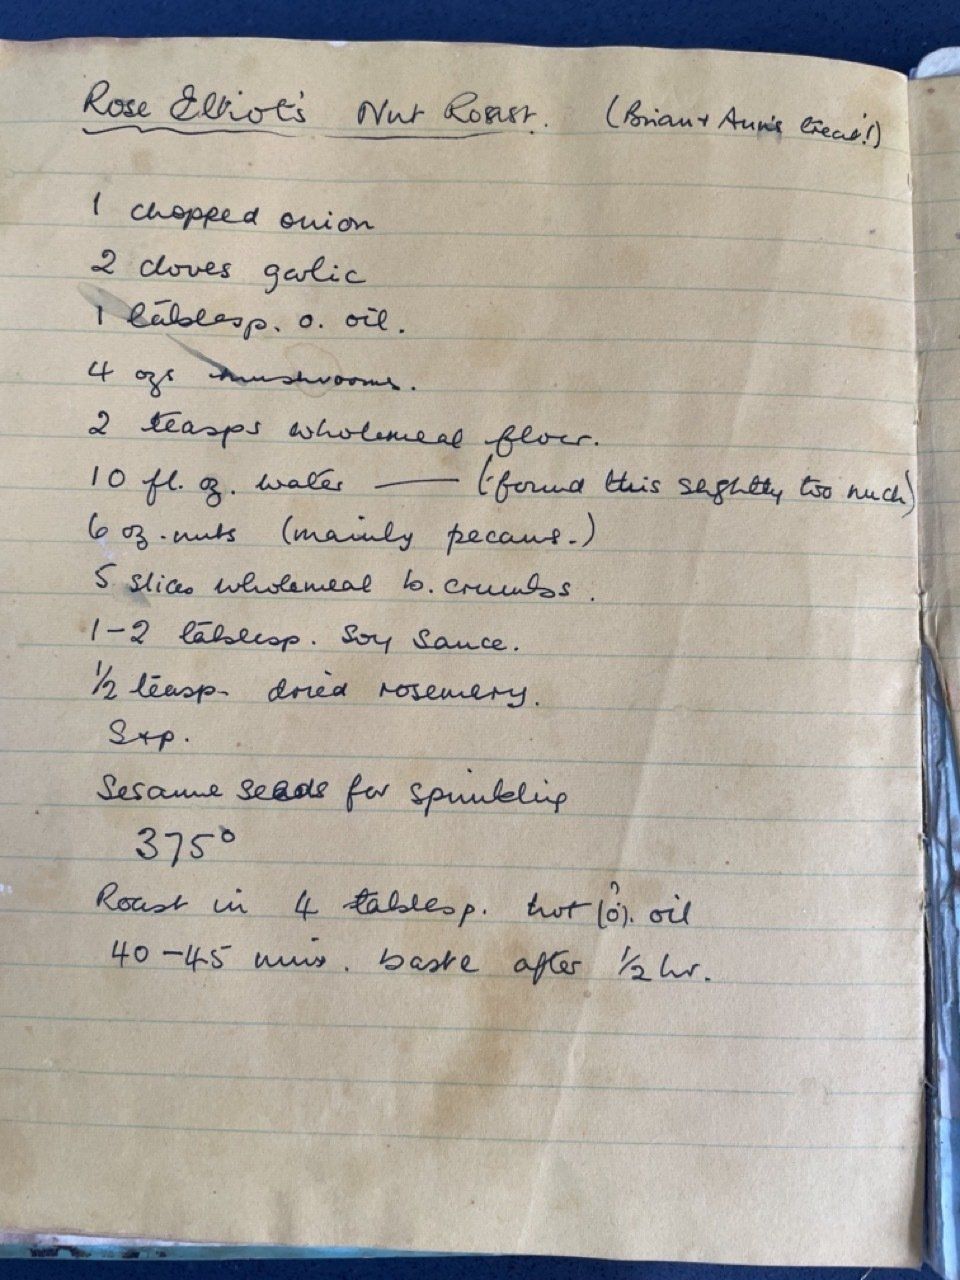 Rose Elliot's Nut Roast. (Brian + Ann's treat!)
1 chopped onion
2 cloves garlic
1 tablesp. o. oil.
4 ozs mushrooms.
2 teasps wholemeal flour.
10 fl. oz. water —— (found this slightly too much)
6 oz. nuts (mainly pecans.)
5 slices wholemeal b. crumbs.
1-2 tablesp. Soy Sauce.
1/2 teasp. dried rosemery.
S+p.
Sesame seeds for sprinkling
375°
Roast in 4 tablesp. hot (o). oil
40-45 mins. baste after 1/2 hr.